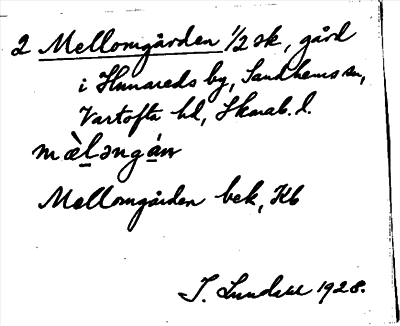 2 Mellomgården 1/2 sk, gård
i Hunareds by, Sandhems sn,
Vartofta hd, Skarab. l.
mæ̀lənგán
Mellomgården bek, Kb
J. Lundahl 1928.